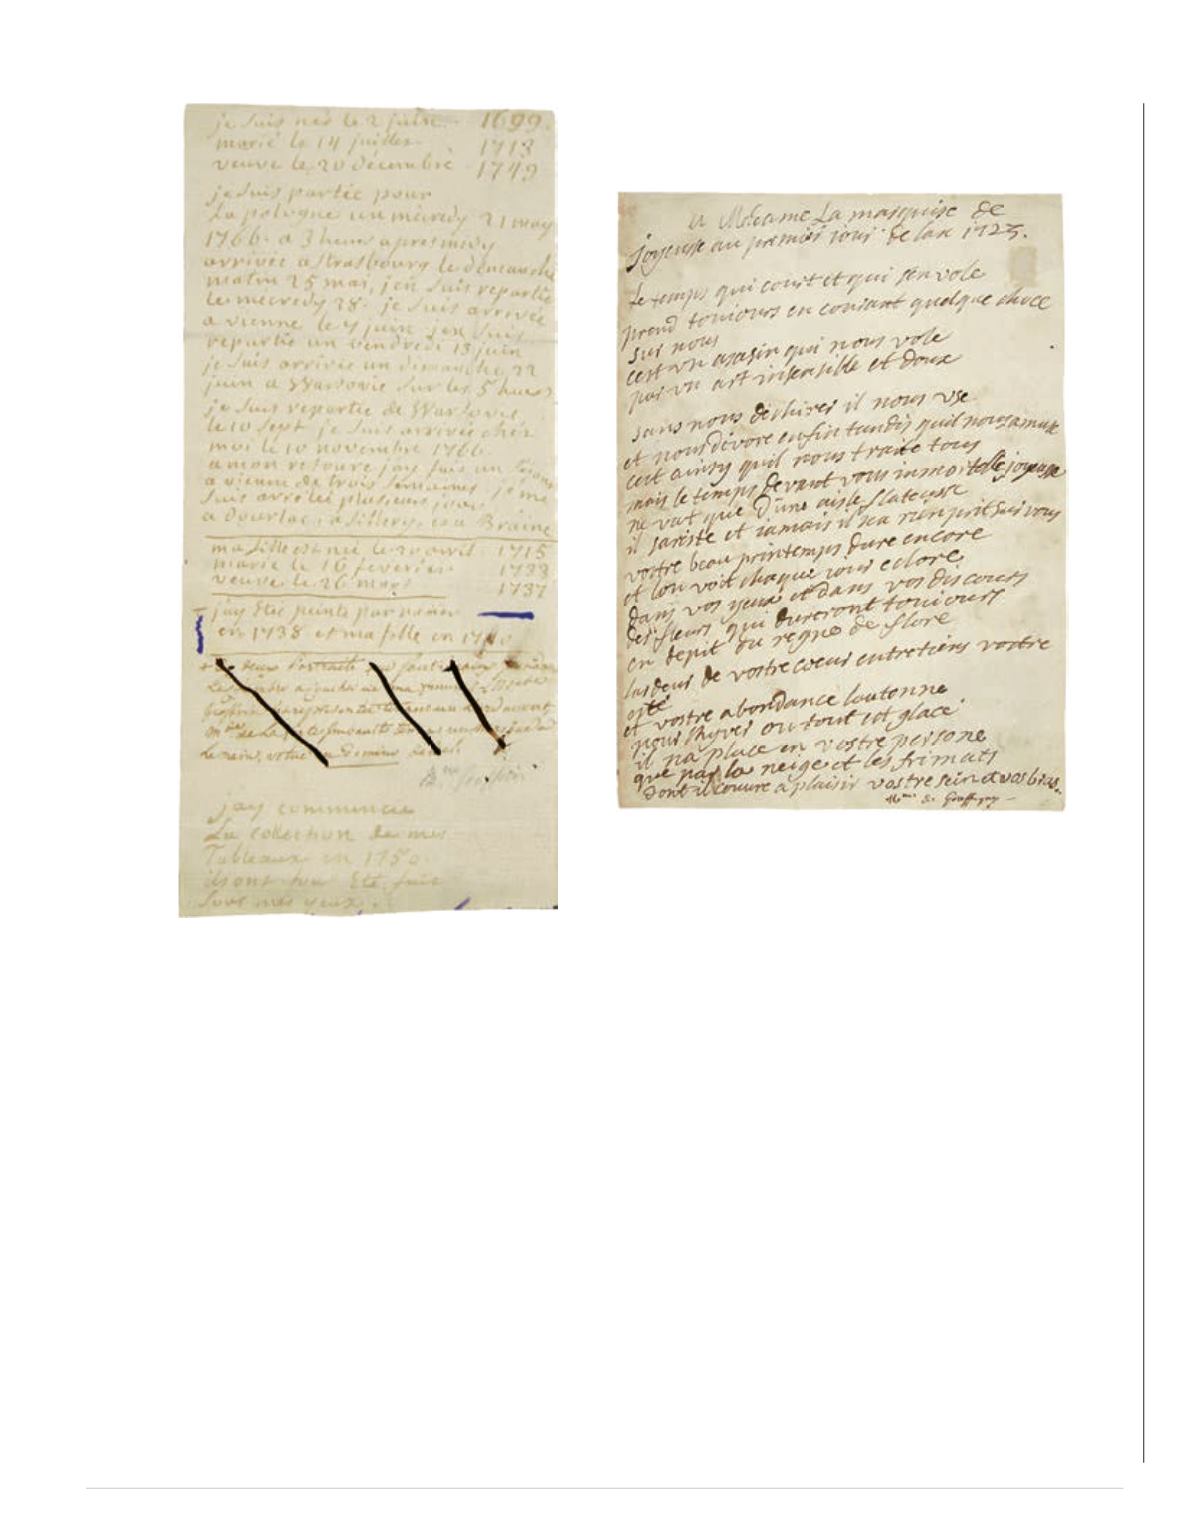 je suis née le 2 juin 1699.
marié le 14 juillet 1713
veuve le 20 décembre 1749
je suis partie pour
La pologne un mécredy 21 may
1766. a 3 heures apresmidy
arrivée a Strasbourg le dimanche
matin 25 mai, jen suis repartie
le mécredy 28. je suis arrivée
a vienne le 4 juin jen suis
repartie un vendredi 13 juin
je suis arrivée un dimanche 22
juin a Warsovie sur les 5 heures
je suis repartie de Warsovie
le 10 sept. je suis arrivée chés
moi le 10 novembre 1766.
a mon retour jay fais un séjour
a vienne de trois semaines je me
suis arrétée plusieurs jours
a dourlac, a Sillery, et a Braine
ma fille est née le 20 avril 1715
marié le 16 feverier 1733
veuve le 26 mars 1737
jay étée peinte par natier
en 1738 et ma fille en 1740
deux Portraits
jay commencée
La collection de mes
Tableaux en 1750.
ils ont tous Eté fais
sous mes yeux.
a Madame La marquise de
joyeuse au premier iour de lan 1725.
Le temps qui court et qui sen vole
prend toujours en courant quelque choce
sur nous
cest un asasin qui nous vole
par un art insensible et doux
sans nous déchirer il nous use
et nous dévore enfin tandis quil nous amuse
cest ainsy quil nous traite tous
mais le temps devant vous inmortelle joyeuse
ne vat que d'une aisle flateusse
il sareste et iamais il na rien prit sur vous
vostre beau printemps dure encore
et lon voit chaque iour eclore
dans vos yeux et dans vos discours
des fleurs qui dureront toujours
en depit du regne de flore
lardeur de vostre coeur entretiens vostre
esté
et vostre abondance lautonne
pour lhyver ou tout est glacé
il na place en vostre persone
que par la neige et les frimats
dont il couvre a plaisir vostre sein et vos bras.